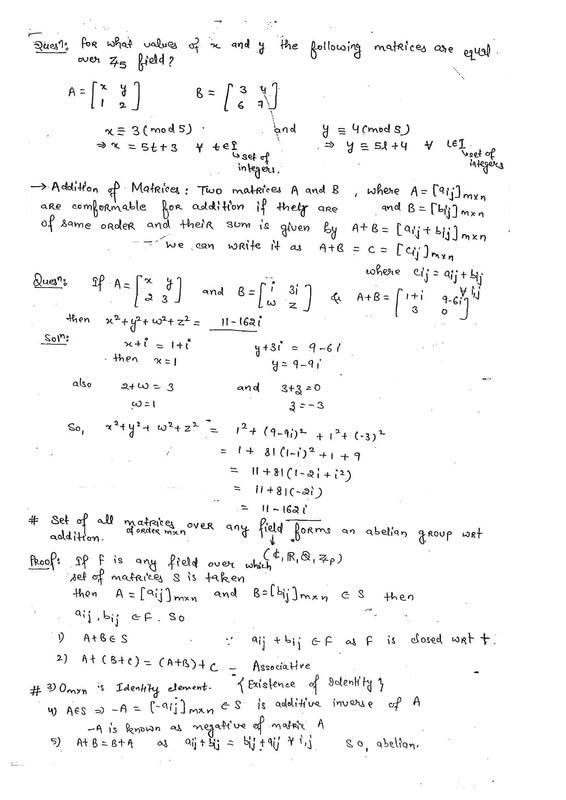 Quesⁿ: For what values of x and y the following matrices are equal
over Z₅ field?
A = [x y; 1 2]   B = [3 4; 6 7]
x ≡ 3 (mod 5)   and   y ≡ 4 (mod 5)
⇒ x = 5t+3 ∀ t∈I   ⇒ y ≡ 5l+4 ∀ l∈I
↳ set of integers.   ↳ set of integers
→ Addition of Matrices: Two matrices A and B, where A = [aij]m×n
are comformable for addition if they are   and B = [bij]m×n
of same order and their sum is given by A+B = [aij + bij]m×n
we can write it as A+B = C = [cij]m×n
where cij = aij + bij ∀ i,j
Quesⁿ: If A = [x y; 2 3] and B = [i 3i; w z] & A+B = [1+i 9-6i; 3 0]
then x²+y²+w²+z² = 11-162i
Solⁿ:   x+i = 1+i   y+3i = 9-6i
then x=1   y = 9-9i
also   2+w = 3   and   3+z=0
w=1   z=-3
So, x²+y²+w²+z² = 1² + (9-9i)² + 1² + (-3)²
= 1 + 81(1-i)² + 1 + 9
= 11+81(1-2i+i²)
= 11+81(-2i)
= 11-162i
# Set of all matrices of order m×n over any field forms an abelian group wrt
addition.   (ℂ, ℝ, ℚ, Zp)
Proof: If F is any field over which
set of matrices S is taken
then A = [aij]m×n and B=[bij]m×n ∈ S then
aij, bij ∈ F. So
1) A+B ∈ S   ∵ aij + bij ∈ F as F is closed wrt +.
2) A+(B+C) = (A+B)+C – Associative
# 3) Om×n is Identity element. {Existence of Identity}
4) A∈S ⇒ -A = [-aij]m×n ∈ S is additive inverse of A
-A is known as negative of matrix A
5) A+B = B+A as aij+bij = bij+aij ∀ i,j   So, abelian.